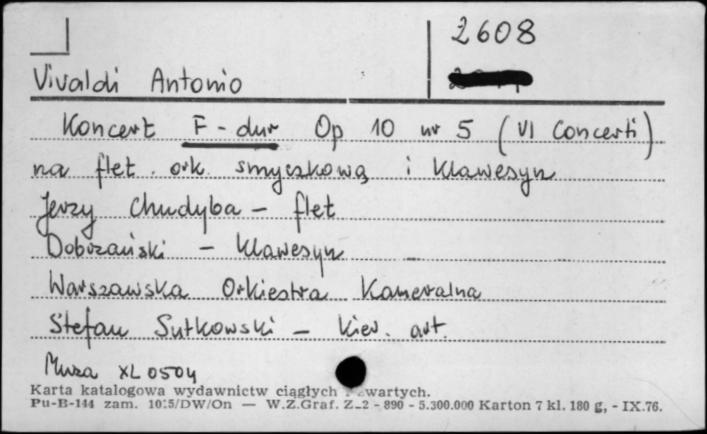 2608
Vivaldi Antonio
Koncert F-dur Op 10 nr 5 (VI Concerti)
na flet. ork. smyczkową i klawesyn
Jerzy Chudyba - flet
Dobrzański - klawesyn
Warszawska Orkiestra Kameralna
Stefan Sutkowski - kier. art.
Muza XL 0504
Karta katalogowa wydawnictw ciągłych wartych.
Pu-B-144 zam. 1015/DW/On — W.Z.Graf. Z-2 - 890 - 5.300.000 Karton 7 kl. 180 g, - IX.76.